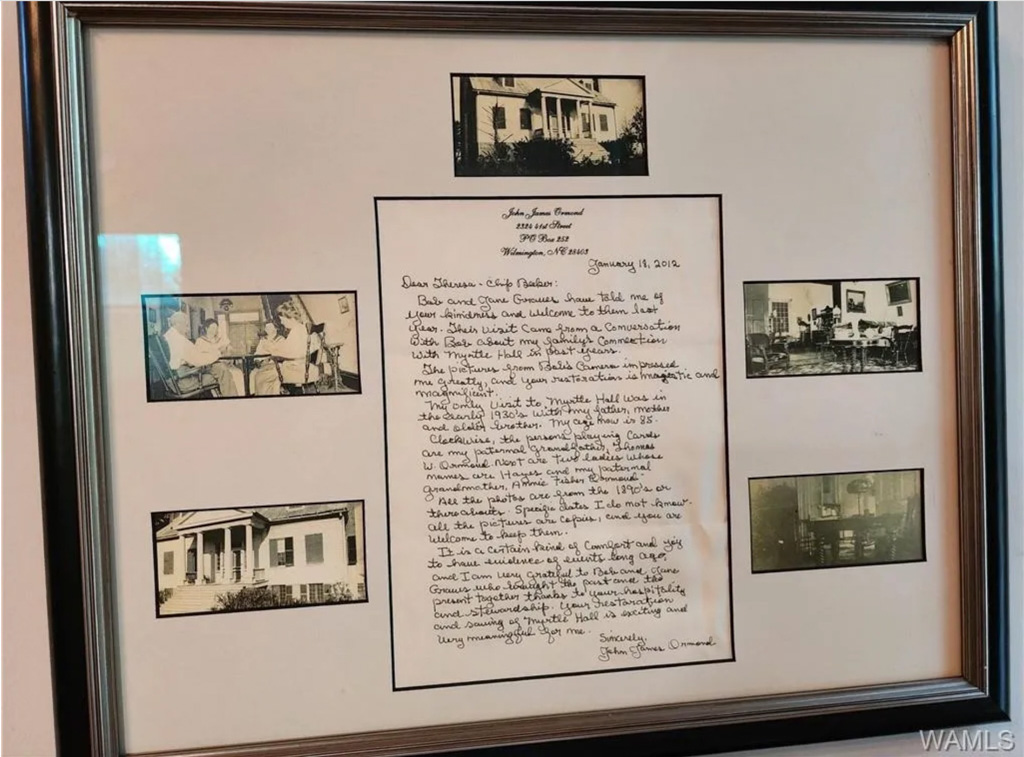 John James Ormond
2324 41st Street
PO Box 252
Wilmington, NC 28403
January 18, 2012
Dear Theresa - Chip Beeker:
Bob and Jane Graves have told me of
your kindness and welcome to them last
year. Their visit came from a conversation
with Bob about my family's connection
with Myrtle Hall in past years.
The pictures from Bob's camera impressed
me greatly, and your restoration is majestic and
magnificent.
My only visit to Myrtle Hall was in
the early 1930's with my father, mother
and older brother. My age now is 85.
Clockwise, the persons playing cards
are my paternal grandfather, Thomas
W. Ormond. Next are two ladies whose
names are Hayes and my paternal
grandmother, Annie Fisher Ormond.
All the photos are from the 1890's or
thereabouts. Specific dates I do not know.
All the pictures are copies, and you are
welcome to keep them.
It is a certain kind of comfort and joy
to have evidence of events long ago,
and I am very grateful to Bob and Jane
Graves who brought the past and the
present together thanks to your hospitality
and stewardship. Your restoration
and saving of Myrtle Hall is exciting and
very meaningful for me.
Sincerely,
John James Ormond
WAMLS